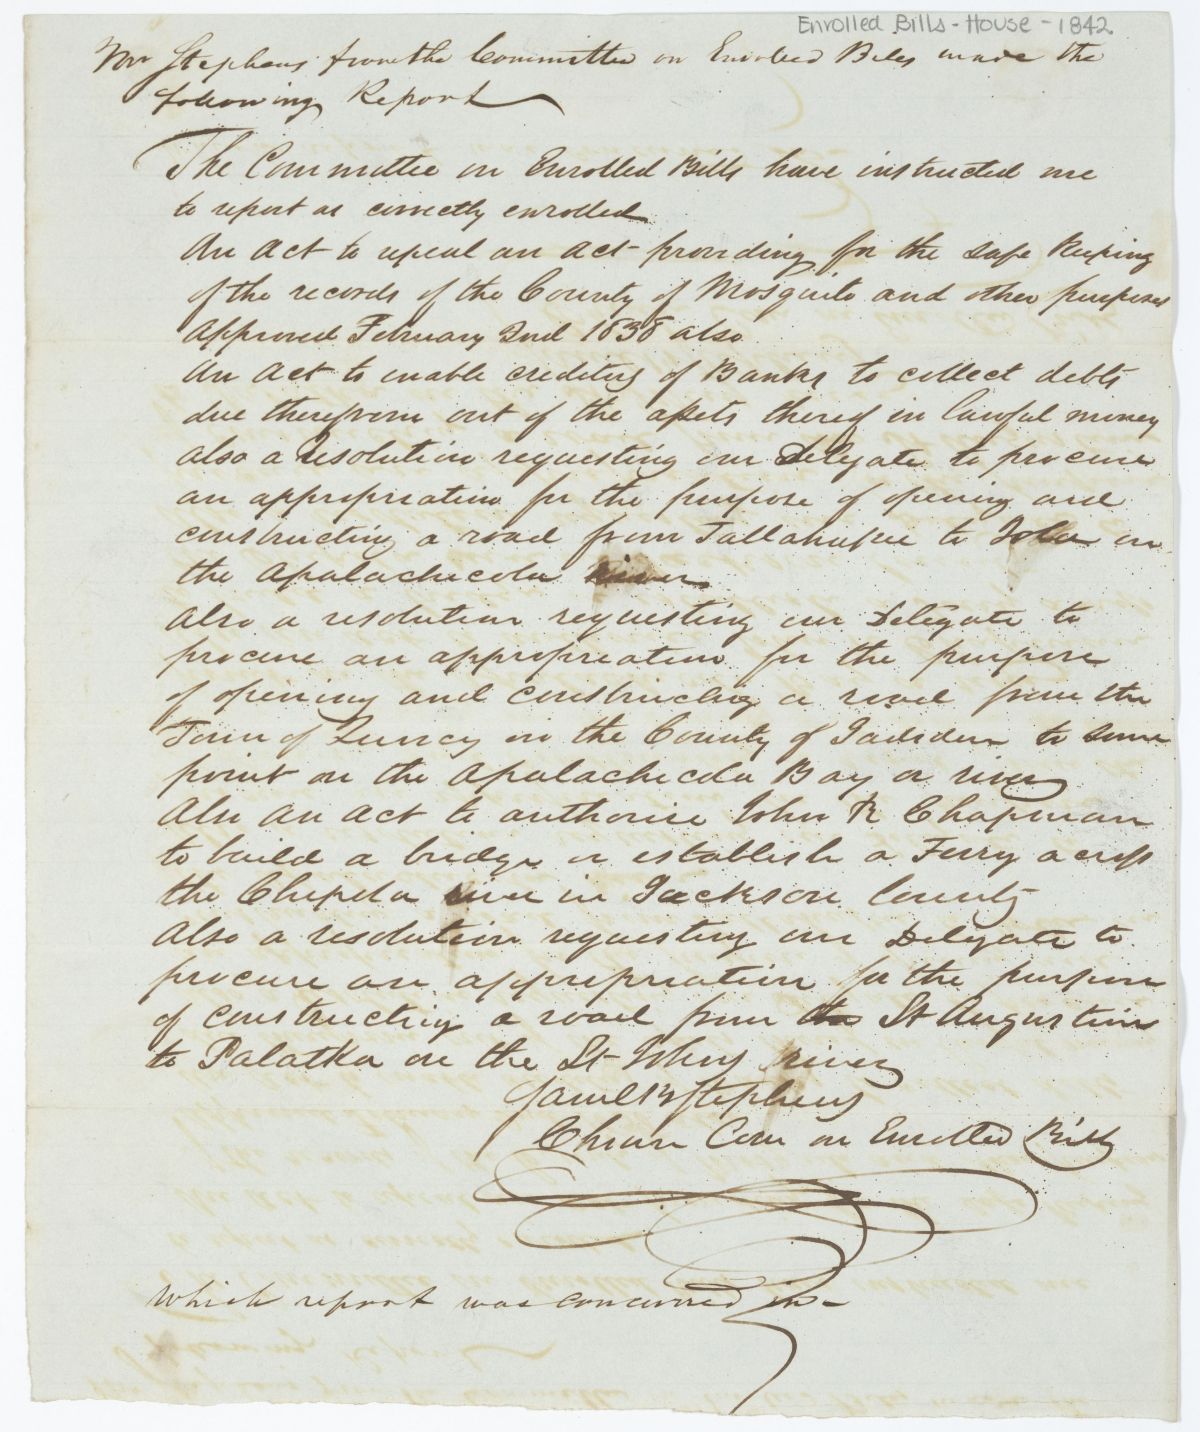 Enrolled Bills - House - 1842
Mr Stephens from the Committee on Enrolled Bills made the
following Report
The Committee on Enrolled Bills have instructed me
to report as correctly enrolled
An Act to repeal an act providing for the safe keeping
of the records of the County of Mosquito and other purposes
approved February 2nd 1838 also
An Act to enable creditors of Banks to collect debts
due therefrom out of the assets thereof in lawful money
also a resolution requesting our Delegate to procure
an appropriation for the purpose of opening and
constructing a road from Tallahassee to Iola on
the Apalachecola river
Also a resolution requesting our Delegate to
procure an appropriation for the purpose
of opening and constructing a road from the
Town of Quincy in the County of Gadsden to some
point on the Apalachecola Bay or river
Also An Act to authorise John R Chapman
to build a bridge or establish a Ferry across
the Chipola river in Jackson County
Also a resolution requesting our Delegate to
procure an appropriation for the purpose
of constructing a road from St Augustine
to Palatka on the St Johns river
Saml B Stephens
Chrmn Com on Enrolled Bills
Which report was concurred in -